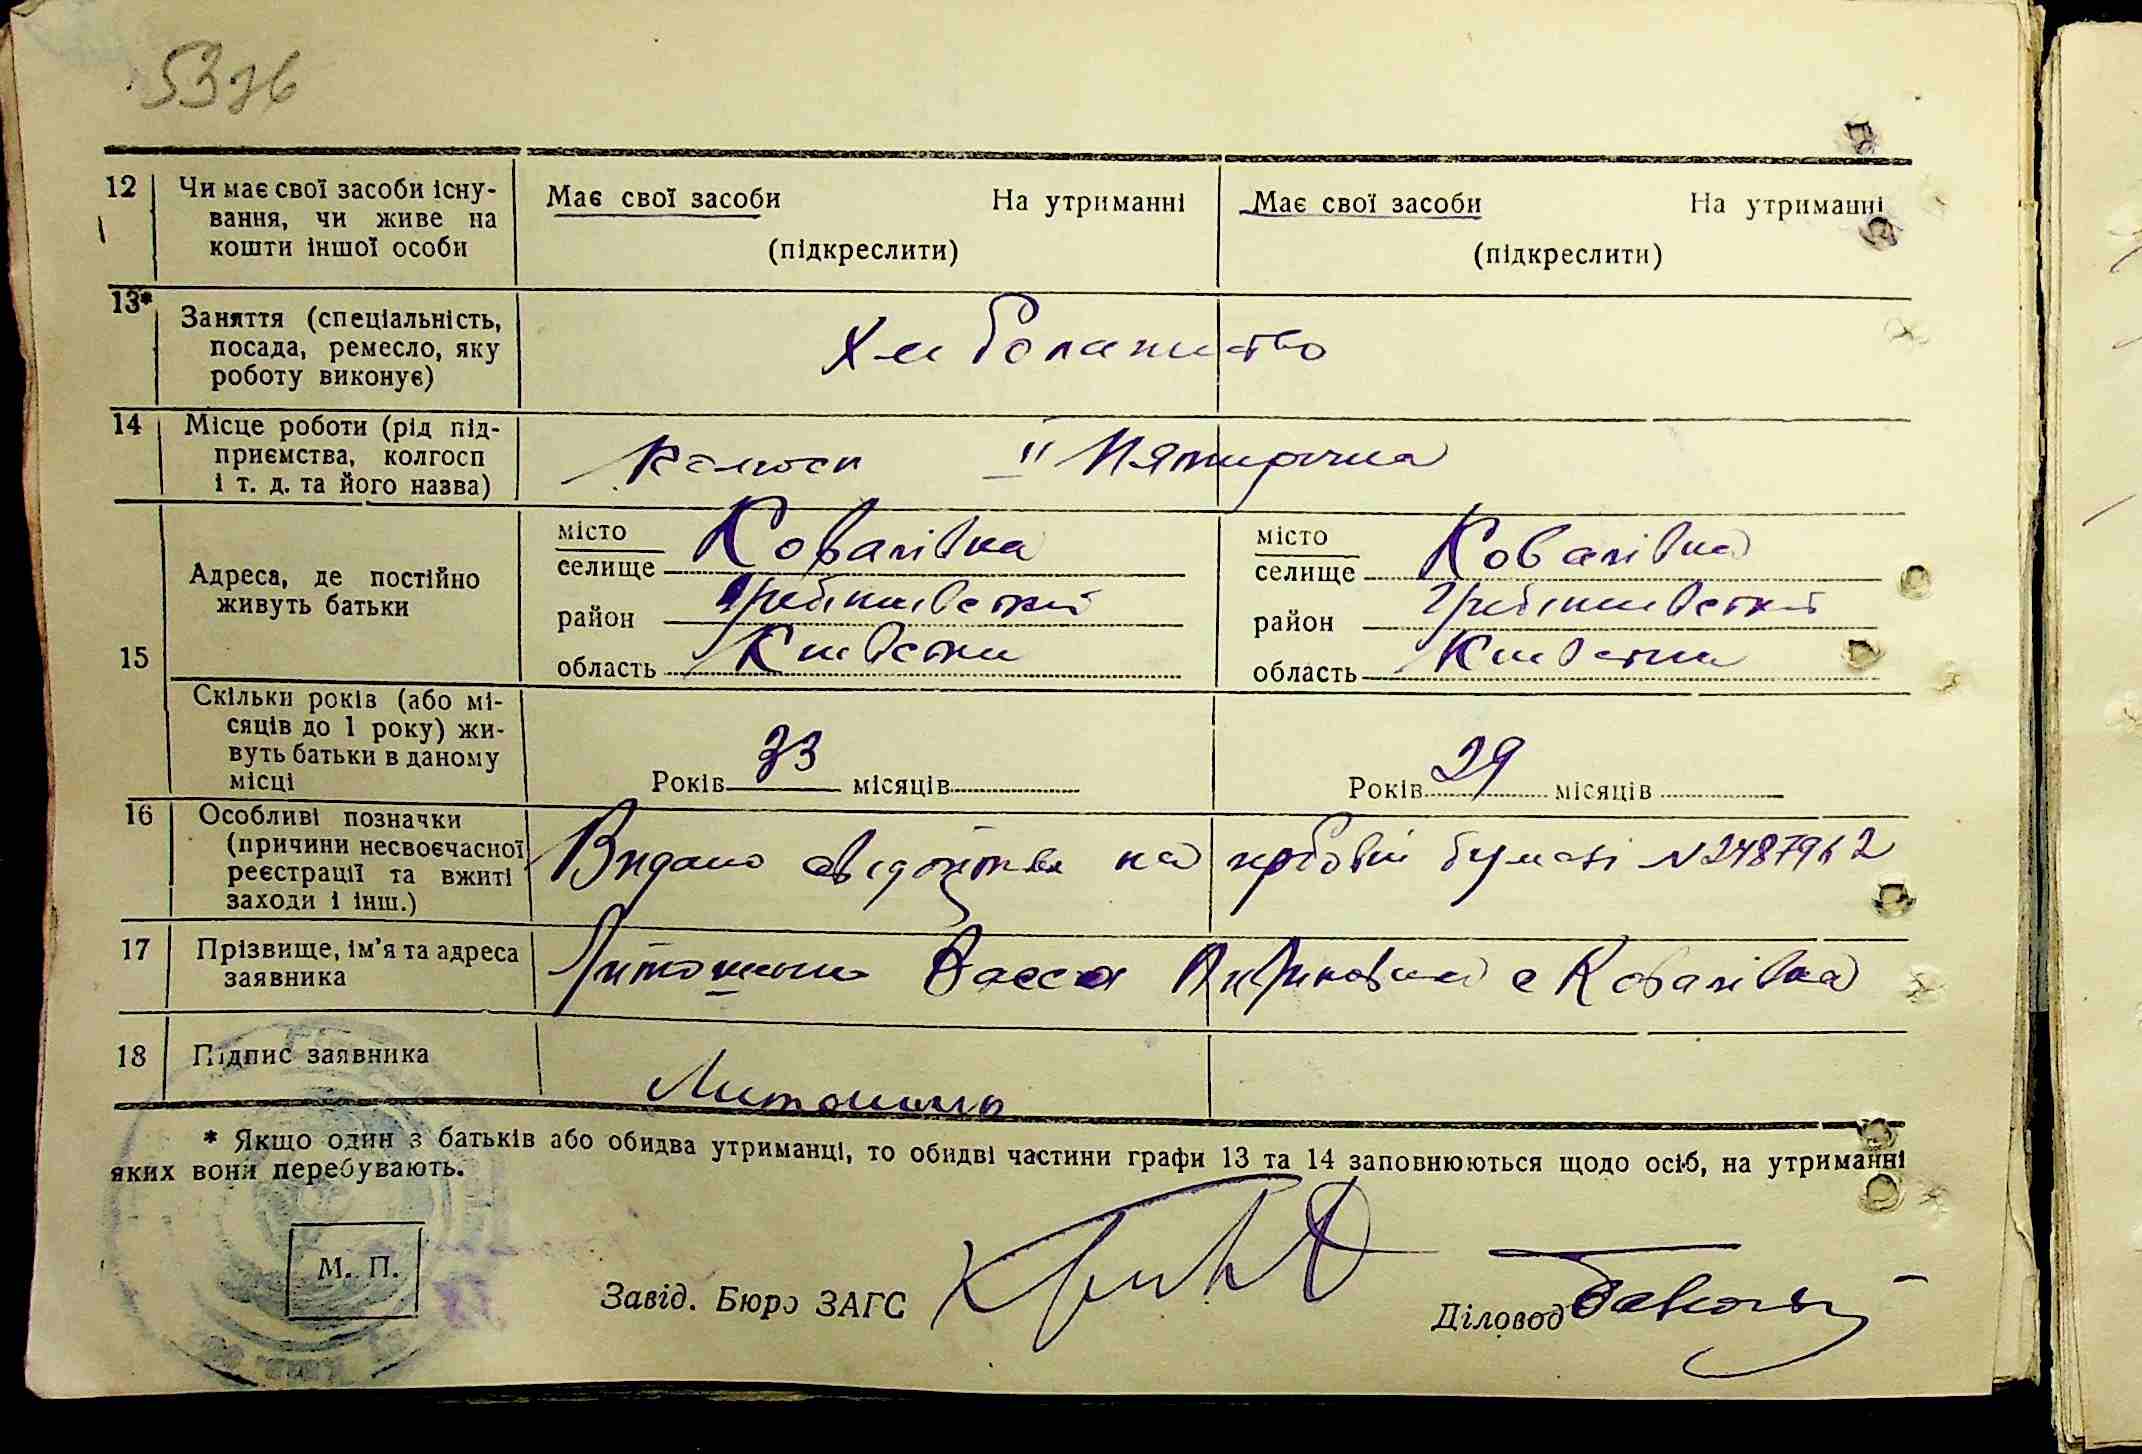 5376
12 Чи має свої засоби існу-
вання, чи живе на
кошти іншої особи
Має свої засоби На утриманні
(підкреслити)
Має свої засоби На утриманні
(підкреслити)
13* Заняття (спеціальність,
посада, ремесло, яку
роботу виконує)
14 Місце роботи (рід під-
приємства, колгосп
і т. д. та його назва)
колгосп II Пятирічка
15
Адреса, де постійно
живуть батьки
місто
селище Ковалівка
район Гребінківський
область Київська
місто
селище Ковалівка
район Гребінківський
область Київська
Скільки років (або мі-
сяців до 1 року) жи-
вуть батьки в даному
місці
Років 33 місяців
Років 29 місяців
16 Особливі позначки
(причини несвоєчасної
реєстрації та вжиті
заходи і інш.)
Видано свідоцтво на бумазі №
17 Прізвище, ім'я та адреса
заявника
Литошко Васса с Ковалівка
18 Підпис заявника
* Якщо один з батьків або обидва утриманці, то обидві частини графи 13 та 14 заповнюються щодо осіб, на утриманні
яких вони перебувають.
М. П.
Завід. Бюро ЗАГС
Діловод